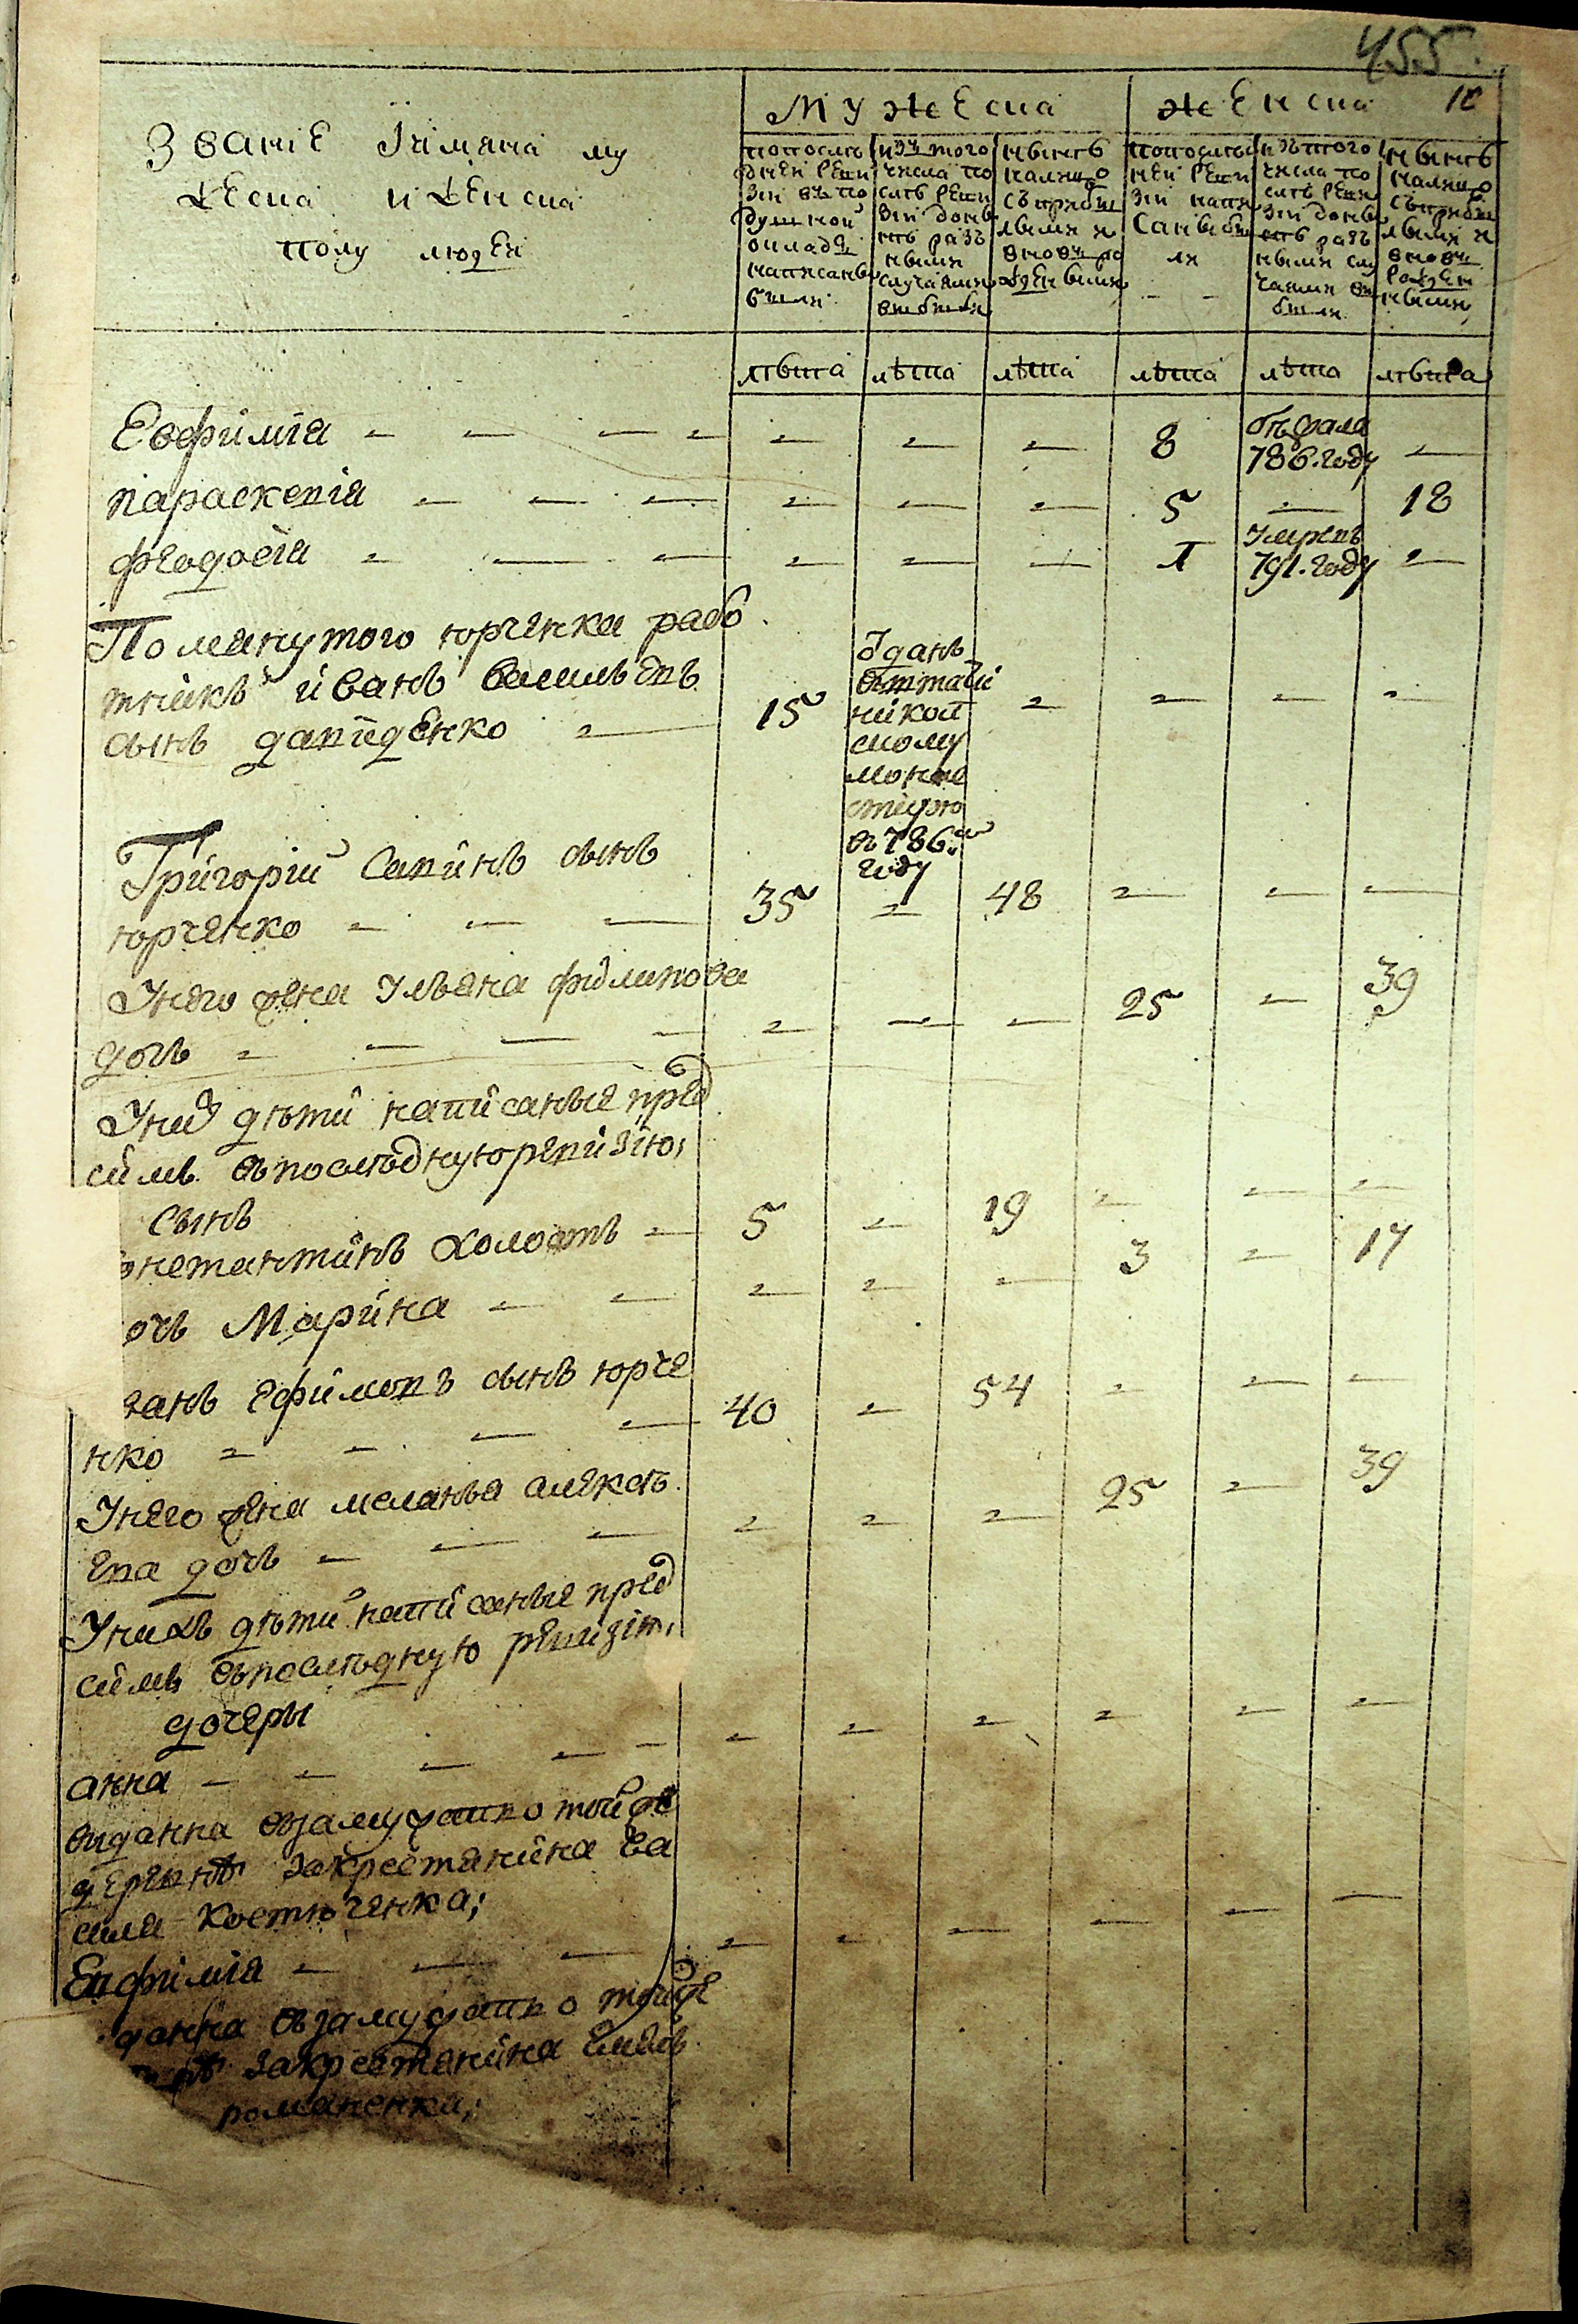 455.
10
Званiе Iимяна му
жеска и женска
полу людей
Мужеска
женска
попослѣ
дней реви
зiи въ по
душной
окладъ
написаны
были
изъ того
числа по
слѣ реви
зiи донынѣ
разными
случаями
выбыли
нынѣ
налицо
съ прибылыми и
вновь рожденными
попослѣд
ней реви
зiи напи
саны бы
ли
изъ того
числа по
слѣ реви
зiи донынѣ
разными слу
чаями вы
были
нынѣ
налицо
съ прибылыми и
вновь
рожден
ными
лѣта лѣта лѣта лѣта лѣта лѣта
Евфимiя - - - - - - - 8 786.году -
параскевiя - - - - - - 5 - 18
феодосiя - - - - - - 1 умре въ 791.году -
Помянутого юрченка рабо
тникъ иванъ василъевъ
сынъ давиденко - 15 - - - -
монас
тирю
въ 786.м
году
Григорiй Савинъ сынъ
юрченко - - - 35 - 48 - - -
Унего жена Ульяна филипова
дочь - - - - - - - 25 - 39
Уних дѣти написаные пред
симъ въпослѣднуюревизiю,
сынъ
онстантинъ холостъ - 5 - 19 - - -
очь Марина - - - - - 3 - 17
ванъ Ефимовъ сынъ юрче
нко - - - - 40 - 54 - - -
Унего жена меланья алексѣ
ева дочь - - - - - - 25 - 39
Унихъ дѣти написаные пред
симъ въпослѣдную ревизiю,
дочеры
анна - - - - - - - - - - -
видана взамужство тойже
деревнѣ закрестянина Ва
силя Костюченка;
Евфимiя - - - - - - - - -
данна взамужство тойже
закрестянина
романенка;